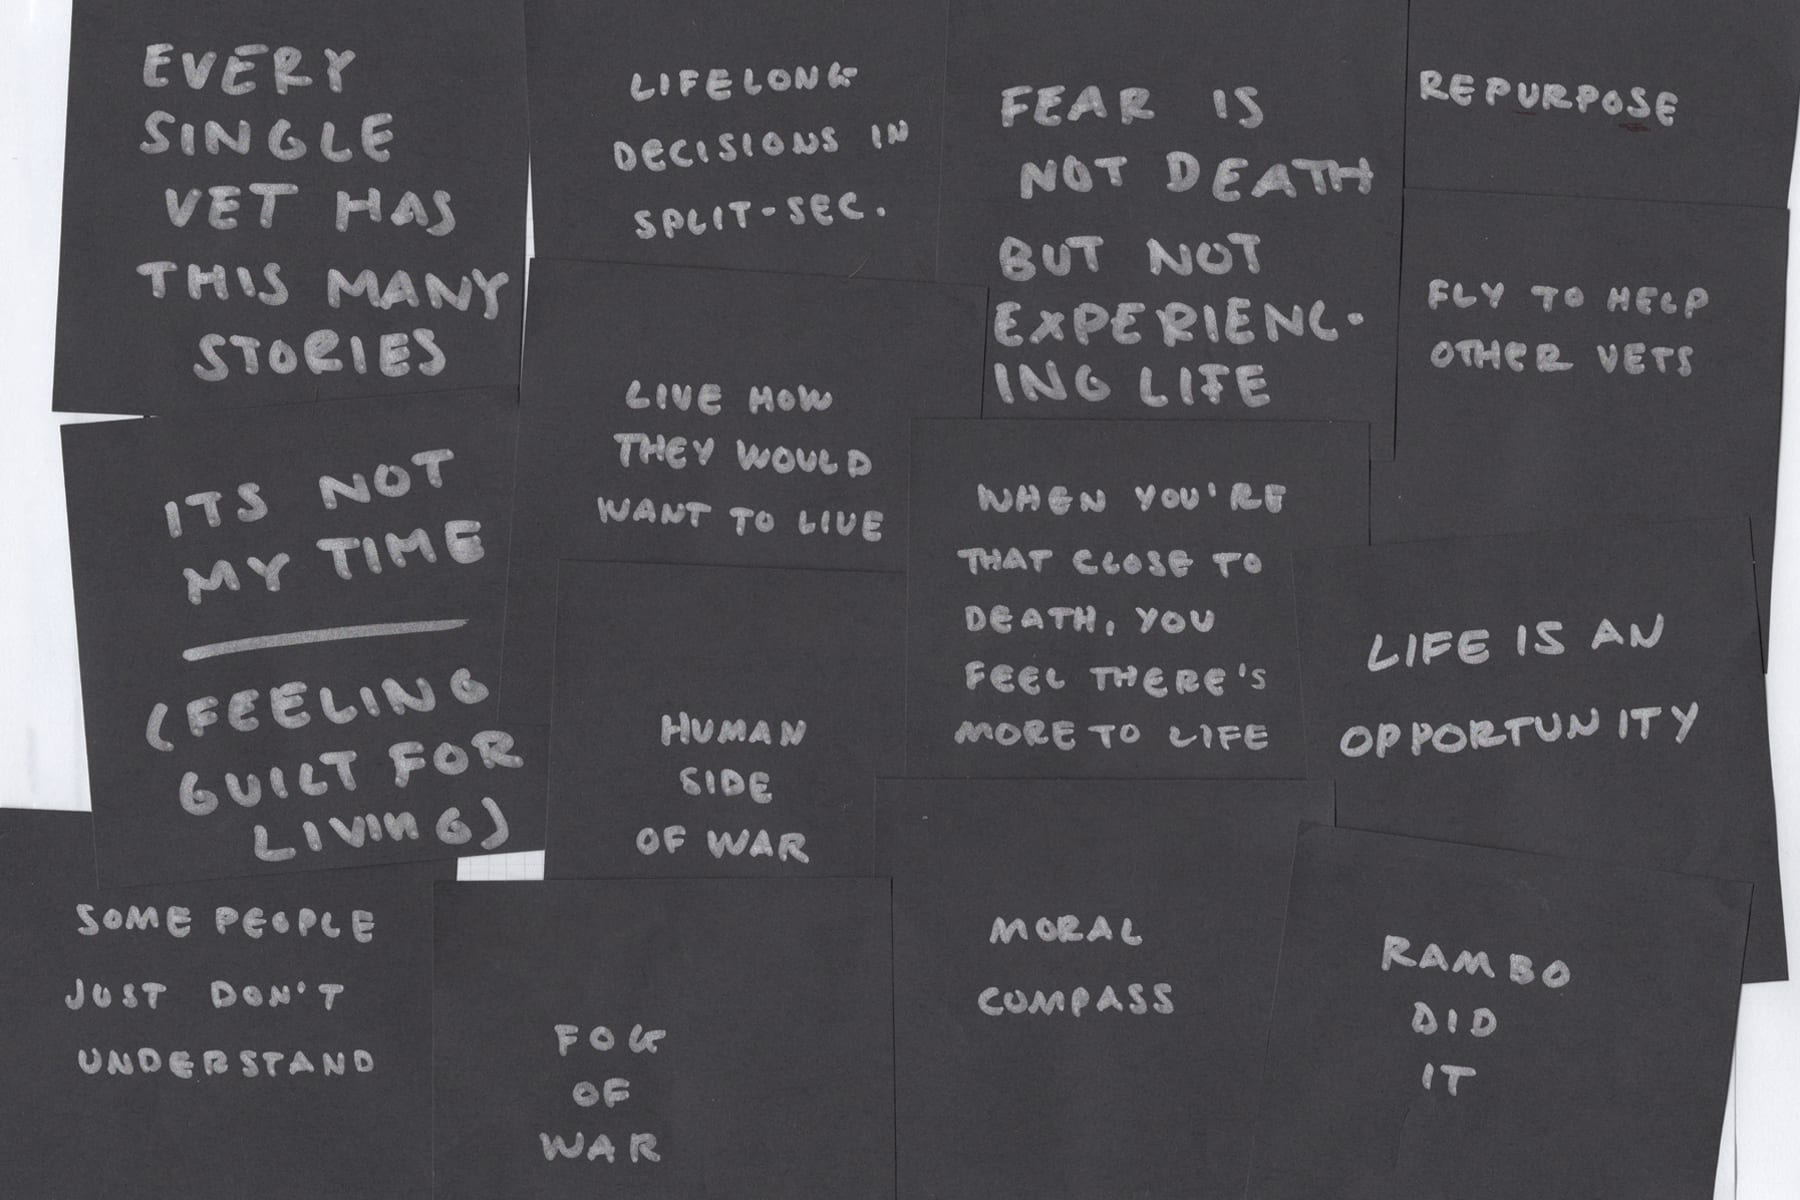 EVERY
SINGLE
VET HAS
THIS MANY
STORIES
LIFELONG
DECISIONS IN
SPLIT-SEC.
FEAR IS
NOT DEATH
BUT NOT
EXPERIENC-
ING LIFE
REPURPOSE
FLY TO HELP
OTHER VETS
ITS NOT
MY TIME
(FEELING
GUILT FOR
LIVING)
LIVE HOW
THEY WOULD
WANT TO LIVE
WHEN YOU'RE
THAT CLOSE TO
DEATH, YOU
FEEL THERE'S
MORE TO LIFE
LIFE IS AN
OPPORTUNITY
HUMAN
SIDE
OF WAR
SOME PEOPLE
JUST DON'T
UNDERSTAND
FOG
OF
WAR
MORAL
COMPASS
RAMBO
DID
IT